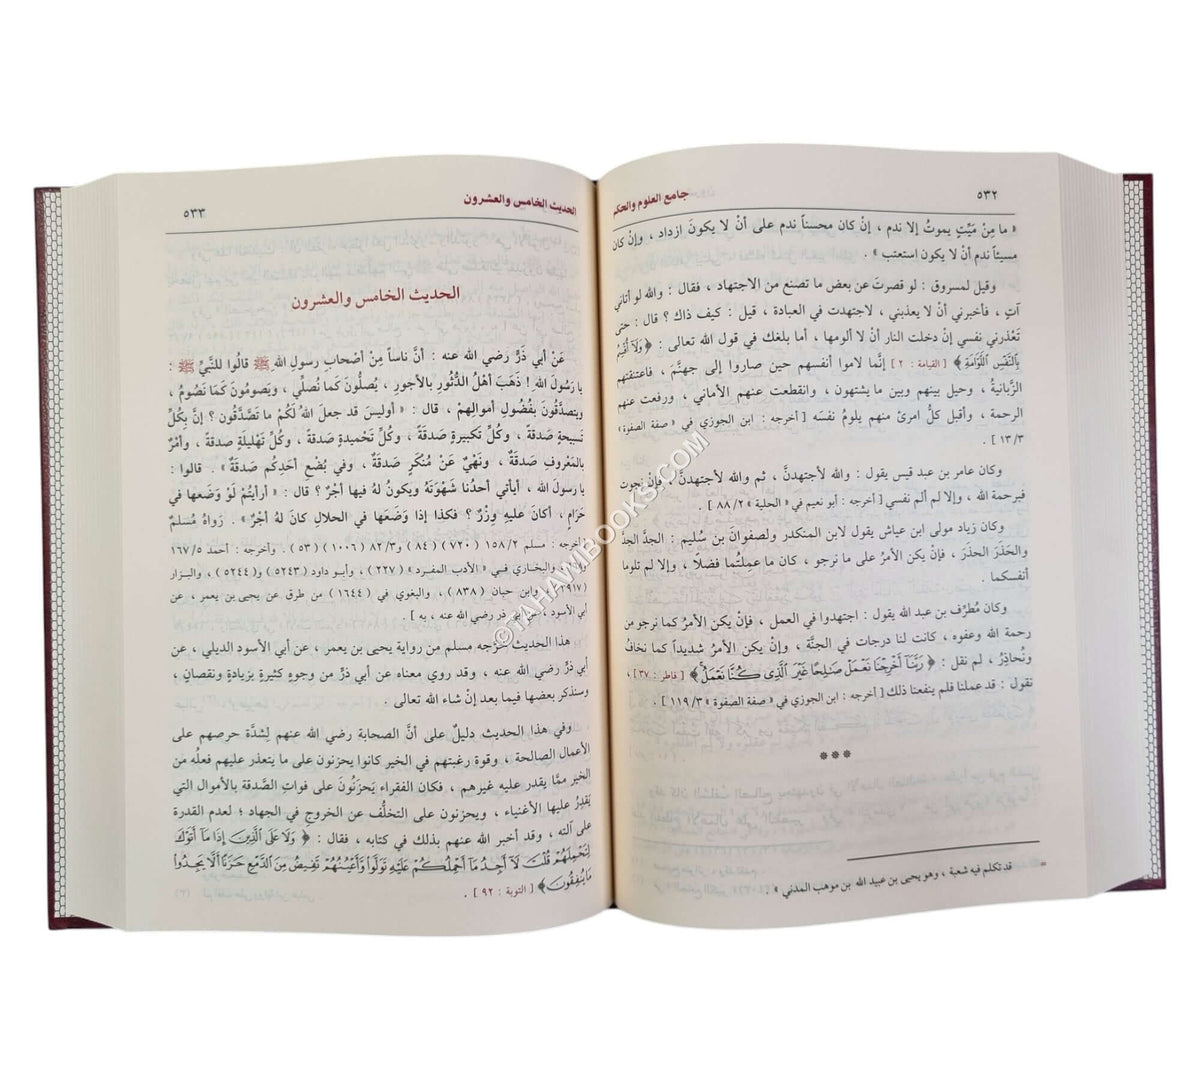 ٥٣٢
جامع العلوم والحكم
« ما مِنْ مَيِّتٍ يموتُ إلا ندم ، إنْ كان محسناً ندم على أنْ لا يكونَ ازداد ، وإنْ كان
مسيئاً ندمَ أنْ لا يكون استعتب » .
وقيل لمسروق : لو قصرتَ عن بعض ما تصنع من الاجتهاد ، فقال : والله لو أتاني
آتٍ ، فأخبرني أنْ لا يعذبني ، لاجتهدت في العبادة ، قيل : كيف ذاك ؟ قال : حتى
تَعْذرني نفسي إنْ دخلت النار أنْ لا ألومها ، أما بلغك في قول الله تعالى : ﴿ وَلَآ أُقْسِمُ
بِٱلنَّفْسِ ٱللَّوَّامَةِ ﴾ [ القيامة : ٢ ] إنَّما لاموا أنفسهم حين صاروا إلى جهنَّم ، فاعتنقتهم
الزَّبانيةُ ، وحيل بينهم وبين ما يشتهون ، وانقطعت عنهم الأماني ، ورفعت عنهم
الرحمة ، وأقبل كلُّ امرئ منهم يلومُ نفسَه [ أخرجه : ابن الجوزي في « صفة الصفوة »
١٣/٣ ] .
وكان عامر بن عبد قيس يقول : والله لأجتهدنَّ ، ثم والله لأجتهدنَّ ، فإنْ نجوت
فبرحمة الله ، وإلا لم ألم نفسي [ أخرجه : أبو نعيم في « الحلية » ٨٨/٢ ] .
وكان زياد مولى ابن عياش يقول لابن المنكدر ولصفوانَ بن سُليم : الجدَّ الجدَّ
والحَذَرَ الحذَرَ ، فإنْ يكن الأمرُ على ما نرجو ، كان ما عملتُما فضلاً ، وإلا لم تلوما
أنفسكما .
وكان مُطرِّف بن عبد الله يقول : اجتهدوا في العمل ، فإنْ يكن الأمرُ كما نرجو من
رحمة الله وعفوه ، كانت لنا درجات في الجنَّة ، وإنْ يكن الأمرُ شديداً كما نخافُ
ونُحاذِرُ ، لم نقل : ﴿ رَبَّنَآ أَخْرِجْنَا نَعْمَلْ صَٰلِحًا غَيْرَ ٱلَّذِى كُنَّا نَعْمَلُ ﴾ [ فاطر : ٣٧ ] ،
نقول : قد عملنا فلم ينفعنا ذلك [ أخرجه : ابن الجوزي في « صفة الصفوة » ١١٩/٣ ] .
***
= قد تكلم فيه شعبة ، وهو يحيى بن عبيد الله بن موهب المدني » .
الحديث الخامس والعشرون
٥٣٣
الحديث الخامس والعشرون
عَنْ أبي ذَرٍّ رَضي الله عنه : أنَّ ناساً مِنْ أصْحابِ رسولِ الله ﷺ قالُوا للنَّبيِّ ﷺ :
يا رَسُولَ الله ! ذَهَبَ أهْلُ الدُّثُورِ بالأجورِ ، يُصلُّونَ كَما نُصلِّي ، ويَصومُونَ كَمَا نَصُومُ ،
ويتصدَّقُونَ بفُضُولِ أموالِهِمْ ، قال : « أوليسَ قد جعلَ اللهُ لَكُمْ ما تَصَّدَّقُون ؟ إنَّ بِكُلِّ
تَسبيحةٍ صَدقةً ، وكُلِّ تَكبيرةٍ صَدقَةً ، وكُلِّ تَحْميدةٍ صَدقةً ، وكُلِّ تَهْليلَةٍ صدقةً ، وأمْرٌ
بالمَعْروفِ صَدقَةٌ ، ونَهْيٌ عَنْ مُنكَرٍ صَدقَةٌ ، وفي بُضْعِ أحَدِكُم صَدقَةٌ » . قالوا :
يا رسولَ الله ، أيأتي أحدُنا شَهْوَتَهُ ويكونُ لهُ فيها أجْرٌ ؟ قال : « أرأيتُمْ لَوْ وَضَعها في
حَرَامٍ ، أكانَ عليهِ وِزْرٌ ؟ فكذا إذا وَضَعَها في الحلالِ كانَ لهُ أجْرٌ » . رَواهُ مُسْلمٌ
أخرجه : مسلم ١٥٨/٢ ( ٧٢٠ ) ( ٨٤ ) و٨٢/٣ ( ١٠٠٦ ) ( ٥٣ ) . وأخرجه : أحمد ١٦٧/٥
والبخاري في « الأدب المفرد » ( ٢٢٧ ) ، وأبو داود ( ٥٢٤٣ ) و( ٥٢٤٤ ) ، والبزار
( ٣٩١٧ ) وابن حبان ( ٨٣٨ ) ، والبغوي في ( ١٦٤٤ ) من طرق عن يحيى بن يعمر ، عن
أبي الأسود ، عن أبي ذر رضي الله عنه ، به ] .
هذا الحديث خرَّجه مسلم من رواية يحيى بن يعمر ، عن أبي الأسود الديلي ، عن
أبي ذرٍّ رضي الله عنه ، وقد روي معناه عن أبي ذرٍّ من وجوهٍ كثيرةٍ بزيادةٍ ونقصانٍ ،
وسنذكر بعضها فيما بعد إنْ شاء الله تعالى .
وفي هذا الحديث دليلٌ على أنَّ الصحابة رضي الله عنهم لِشدَّة حرصهم على
الأعمال الصالحة ، وقوة رغبتهم في الخير كانوا يحزنون على ما يتعذر عليهم فعلُه من
الخير ممَّا يقدر عليه غيرهم ، فكان الفقراء يَحزَنُونَ على فواتِ الصَّدقة بالأموال التي
يَقدِرُ عليها الأغنياء ، ويحزنون على التخلُّف عن الخروج في الجهاد ؛ لعدم القدرة
على آلته ، وقد أخبر الله عنهم بذلك في كتابه ، فقال : ﴿ وَلَا عَلَى ٱلَّذِينَ إِذَا مَآ أَتَوْكَ
لِتَحْمِلَهُمْ قُلْتَ لَآ أَجِدُ مَآ أَحْمِلُكُمْ عَلَيْهِ تَوَلَّوا۟ وَّأَعْيُنُهُمْ تَفِيضُ مِنَ ٱلدَّمْعِ حَزَنًا أَلَّا يَجِدُوا۟
مَا يُنفِقُونَ ﴾ [ التوبة : ٩٢ ] .
©TAHAWIBOOKS.COM